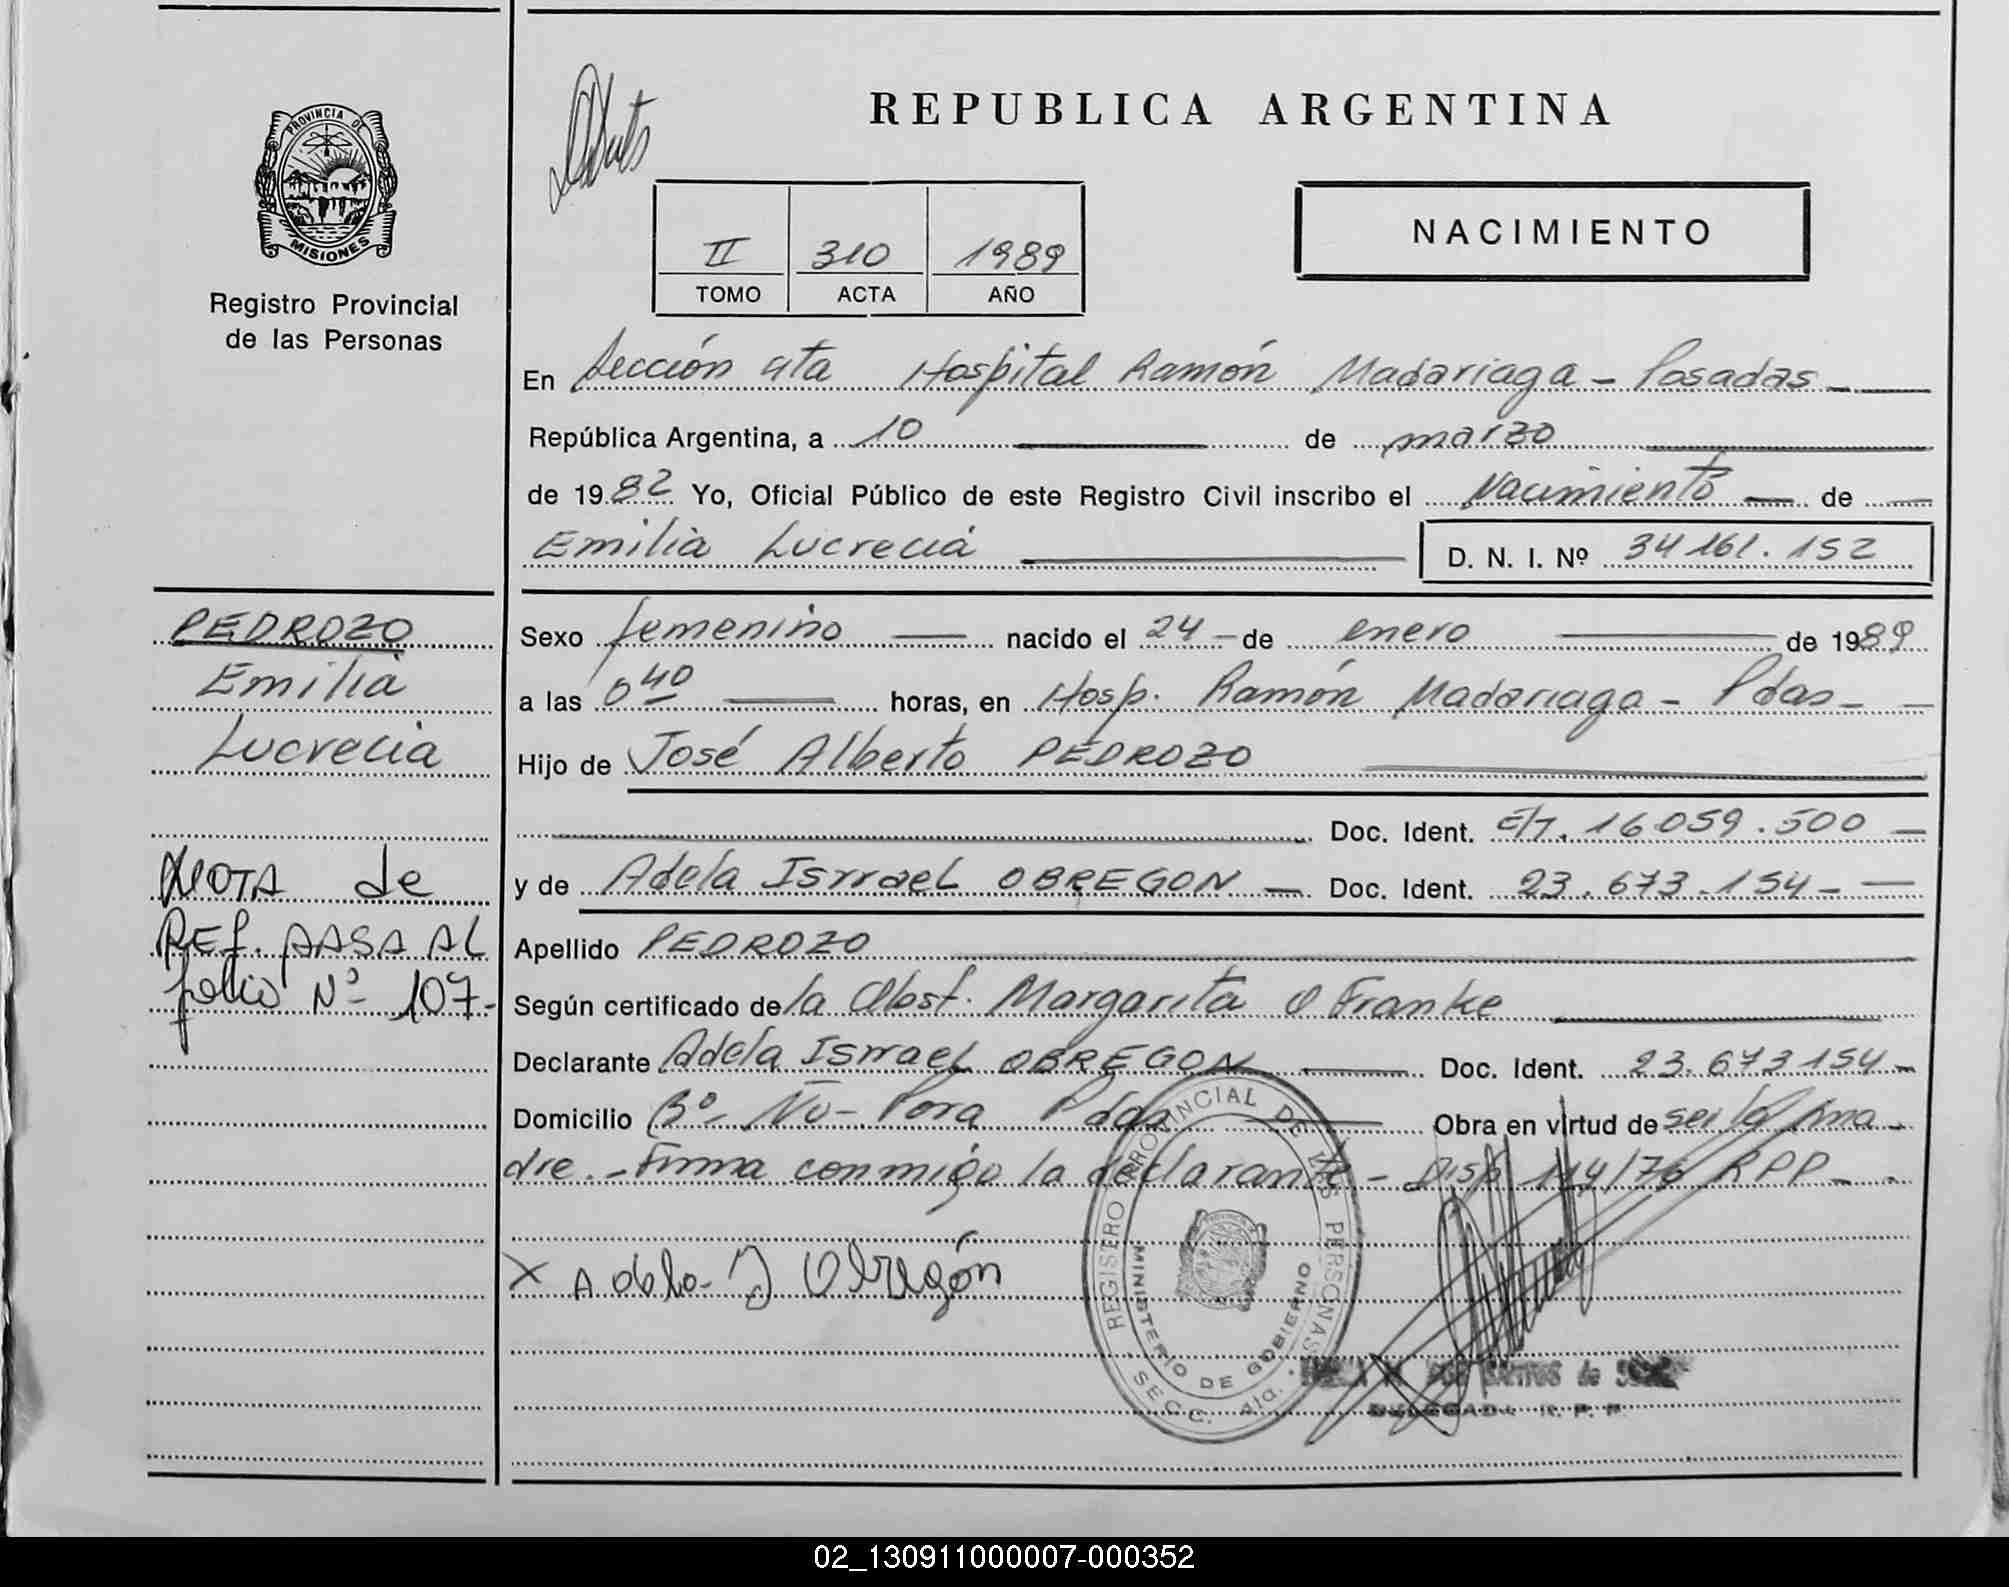 PROVINCIA DE
MISIONES
Registro Provincial
de las Personas
REPUBLICA ARGENTINA
NACIMIENTO
II 310 1989
TOMO ACTA AÑO
En Sección 4ta Hospital Ramón Madariaga - Posadas -
República Argentina, a 10 de marzo
de 1982 Yo, Oficial Público de este Registro Civil inscribo el Nacimiento de
Emilia Lucrecia D. N. I. Nº 34161.152
PEDROZO
Emilia
Lucrecia
NOTA de
REf. PASA AL
folio Nº 107-
Sexo femenino nacido el 24 - de enero de 1989
a las 0 40 horas, en Hosp. Ramón Madariaga - Pdas -
Hijo de José Alberto PEDROZO
Doc. Ident. E/T. 16059.500
y de Adela Isrrael OBREGON Doc. Ident. 23.673.154 -
Apellido PEDROZO
Según certificado de la Obst. Margarita O Franke
Declarante Adela Isrrael OBREGON Doc. Ident. 23.673154 -
Domicilio Bº Ñu - Pora Pdas Obra en virtud de ser la ma
dre. - Firma conmigo la declarante - Disp 114/76 RPP -
X Adela J Obregón
REGISTRO PROVINCIAL DE LAS PERSONAS
MINISTERIO DE GOBIERNO
SECC. 4ta.
DELEGADA R. P. P.
02_130911000007-000352